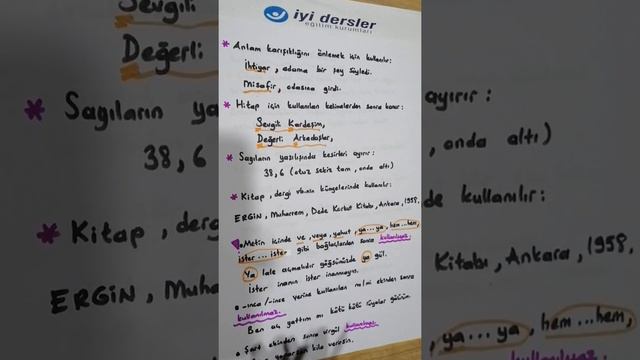 iyi dersler
eğitim kurumları
* Anlam karışıklığını önlemek için kullanılır:
İhtiyar, adama bir şey söyledi.
Misafir, odasına girdi.
* Hitap için kullanılan kelimelerden sonra konur:
Sevgili Kardeşim,
Değerli Arkadaşlar,
* Sayıların yazılışında kesirleri ayırır:
38,6 (otuz sekiz tam, onda altı)
* Kitap, dergi vb.nin künyelerinde kullanılır:
ERGİN, Muharrem, Dede Korkut Kitabı, Ankara, 1958.
Metin içinde ve, veya, yahut, ya...ya, hem...hem,
ister...ister gibi bağlaçlardan sonra kullanılmaz.
Ya lale açmalıdır göğsümüzde ya gül.
İster inanın ister inanmayın.
-ınca/-ince yerine kullanılan mı/mi ekinden sonra
kullanılmaz.
Ben aç yattım mı kötü kötü rüyalar görürüm.
Şart ekinden sonra virgül kullanılmaz.
Sevgili
Değerli
* Sayıların ya
38,6
* Kitap, derg
ERGİN, Muha
ayırır:
, onda altı)
de kullanılır:
Kitabı, Ankara, 1958.
ya...ya, hem...hem,